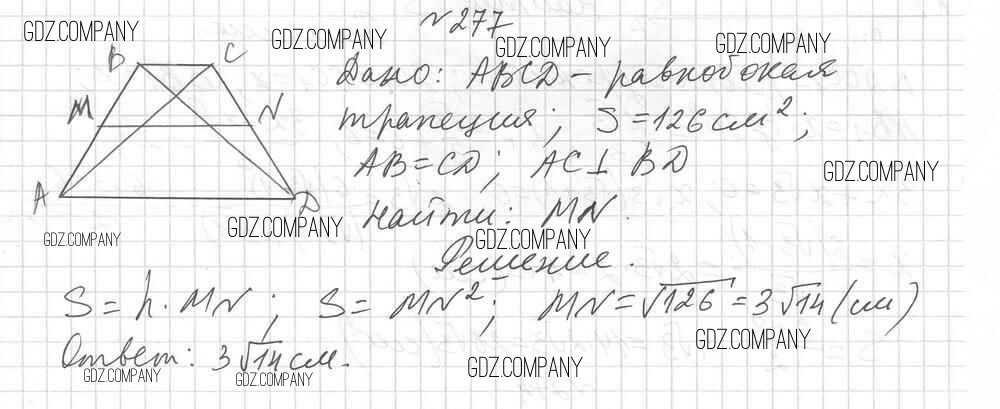 №277
GDZ.COMPANY
GDZ.COMPANY GDZ.COMPANY GDZ.COMPANY
B C
Дано: ABCD – равнобокая
M N
трапеция; S=126 см²;
AB=CD; AC⊥BD
GDZ.COMPANY
A D
Найти: MN.
GDZ.COMPANY GDZ.COMPANY GDZ.COMPANY
Решение.
S=h·MN; S=MN²; MN=√126=3√14(см)
GDZ.COMPANY
Ответ: 3√14 см.
GDZ.COMPANY GDZ.COMPANY GDZ.COMPANY